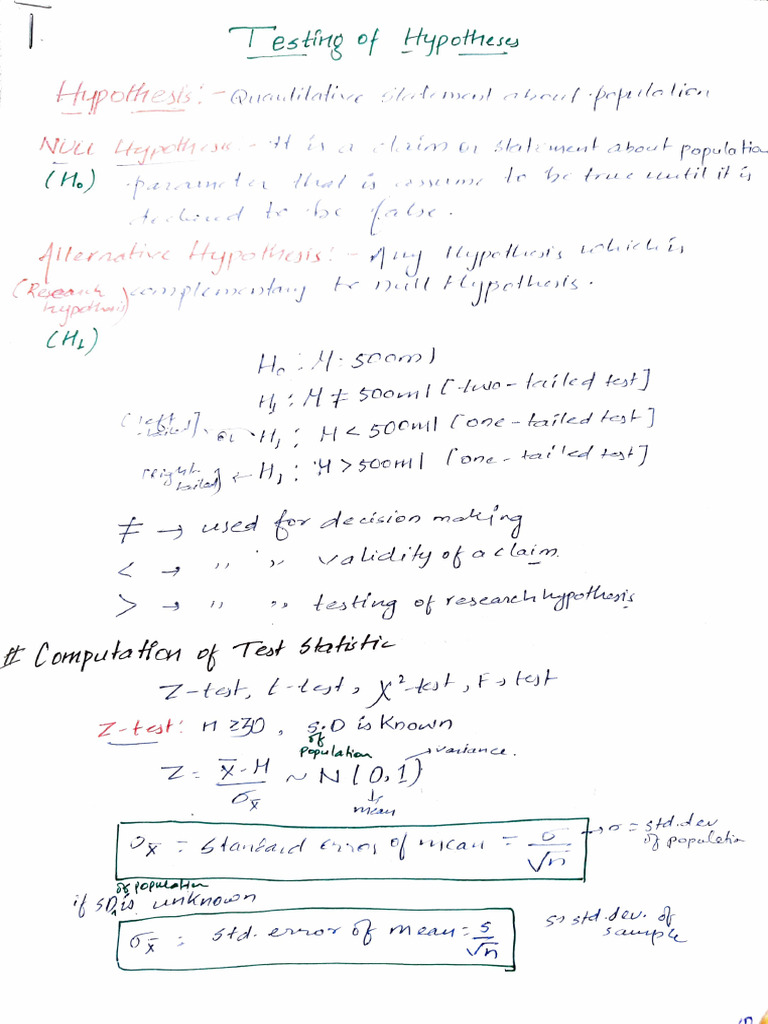 T.
Testing of Hypotheses
Hypothesis :- Quantitative statement about population
NULL Hypothesis - It is a claim or statement about population
(H₀) parameter that is assume to be true until it is
declared to be false.
Alternative Hypothesis :- Any Hypothesis which is
(Research hypothesis) complementary to null Hypothesis.
(H₁)
H₀ : M = 500ml
H₁ : M ≠ 500ml [two-tailed test]
[left tailed] or H₁ : M < 500ml [one-tailed test]
right tailed] ← H₁ : M > 500ml [one-tailed test]
≠ → used for decision making
< → " " validity of a claim.
> → " " testing of research hypothesis
# Computation of Test Statistic
Z-test, t-test, χ²-test, F-test
Z-test: n ≥ 30, S.D of population is known
Z = (x̄ - M)/σx̄ ~ N(0,1) → variance.
↓ mean
σx̄ = Standard error of mean = σ/√n → σ = std. dev of population
if SD of population is unknown
σx̄ = std. error of mean = s/√n s → std. dev. of sample